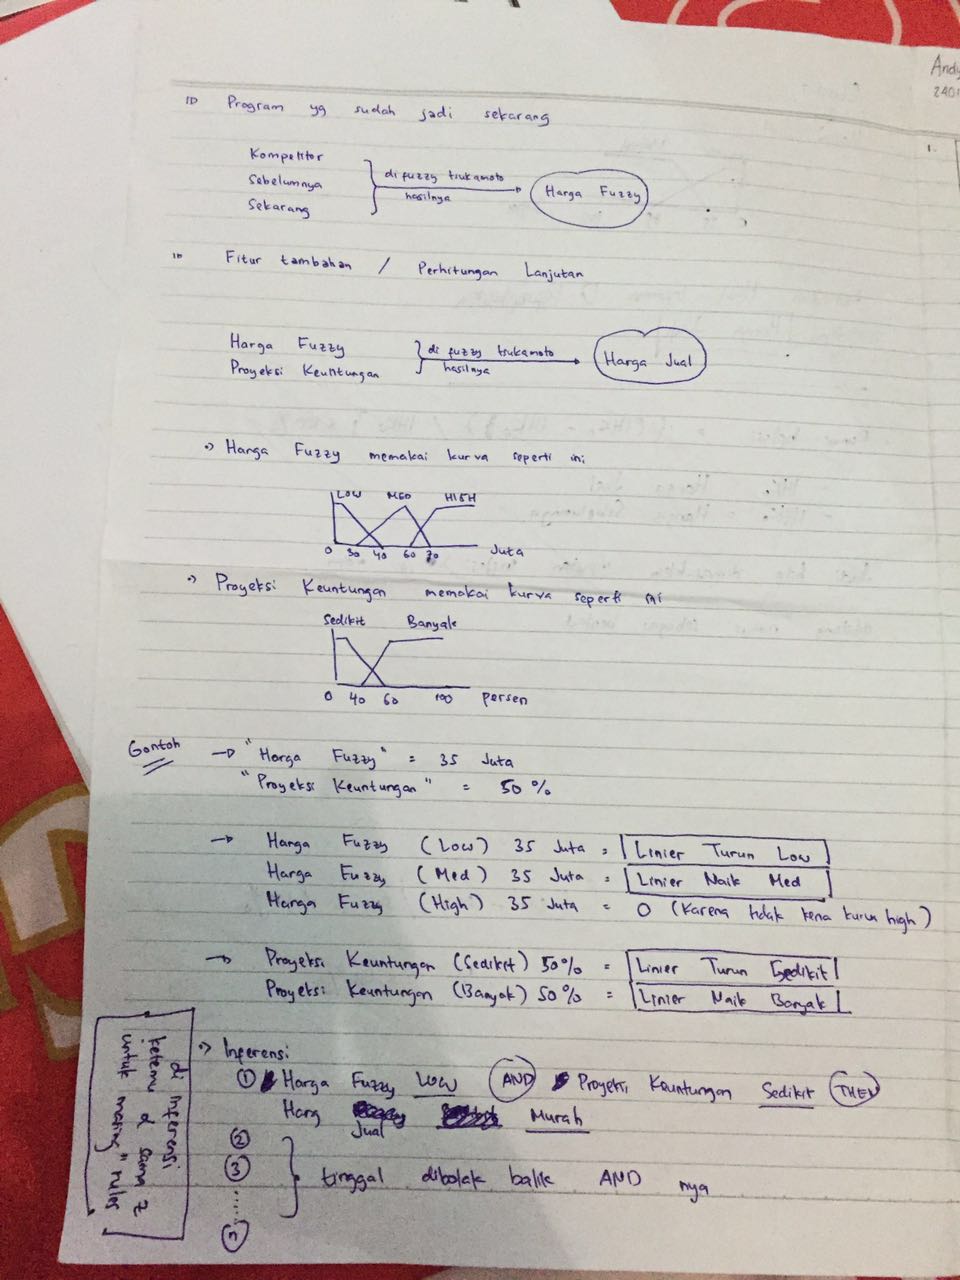 Andy
2401
1.
ID Program yg sudah jadi sekarang
Kompetitor
Sebelumnya
Sekarang
di fuzzy tsukamoto
hasilnya
Harga Fuzzy
Fitur tambahan / Perhitungan Lanjutan
Harga Fuzzy
Proyeksi Keuntungan
di fuzzy tsukamoto
hasilnya
Harga Jual
Harga Fuzzy memakai kurva seperti ini
LOW MED HIGH
0 30 40 60 70 Juta
Proyeksi Keuntungan memakai kurva seperti ini
Sedikit Banyak
0 40 60 100 persen
Contoh
→ "Harga Fuzzy" = 35 Juta
"Proyeksi Keuntungan" = 50 %
→ Harga Fuzzy (Low) 35 Juta = Linier Turun Low
Harga Fuzzy (Med) 35 Juta = Linier Naik Med
Harga Fuzzy (High) 35 Juta = 0 (Karena tidak kena kurva high)
→ Proyeksi Keuntungan (Sedikit) 50% = Linier Turun Sedikit
Proyeksi Keuntungan (Banyak) 50% = Linier Naik Banyak
Inferensi
① Harga Fuzzy Low AND Proyeksi Keuntungan Sedikit THEN
Harg Jual Murah
②
③
......
ⓝ
tinggal dibolak balik AND nya
di Inferensi
ketemu α sama z
untuk masing" rules